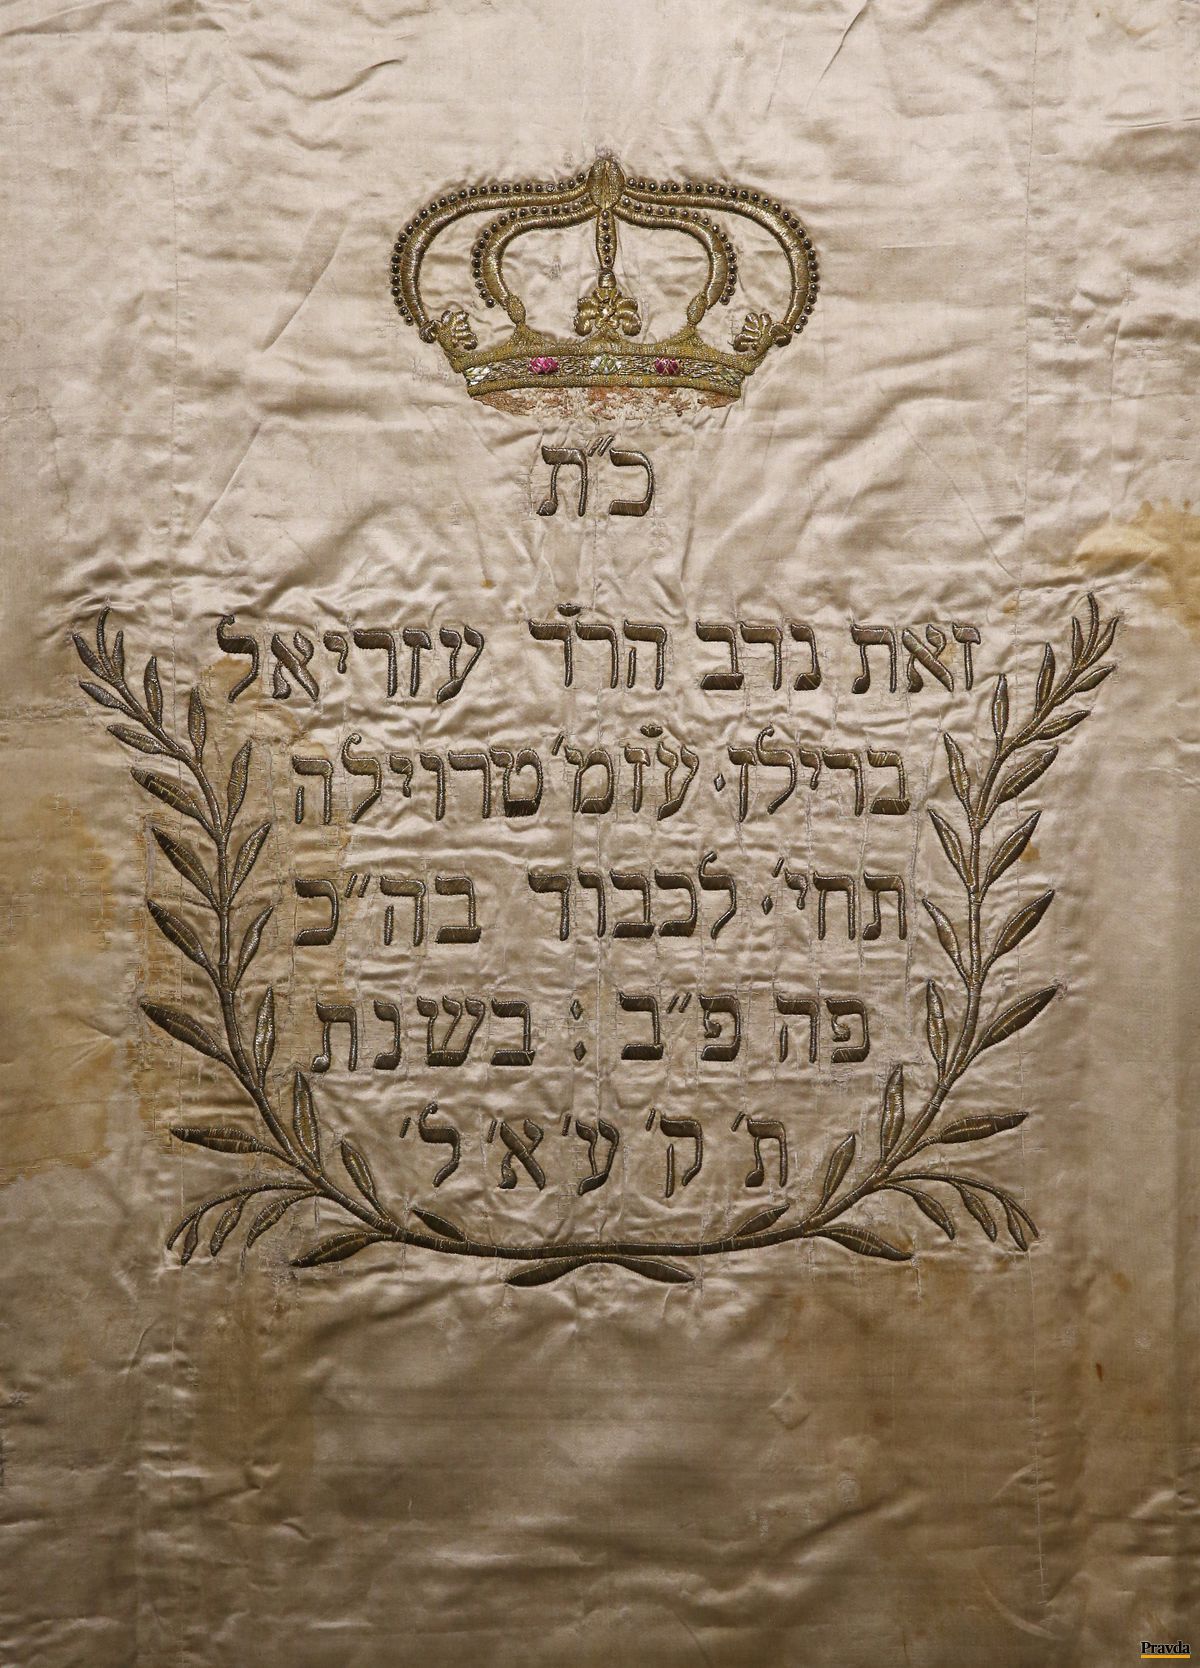 כ״ת
זאת נדב הר״ר עזריאל
ברילן. עז״מ' טרוילה
תחי'. לכבוד בה״כ
פה פ״ב : בשנת
ת' ק' ע' א' ל'
Pravda